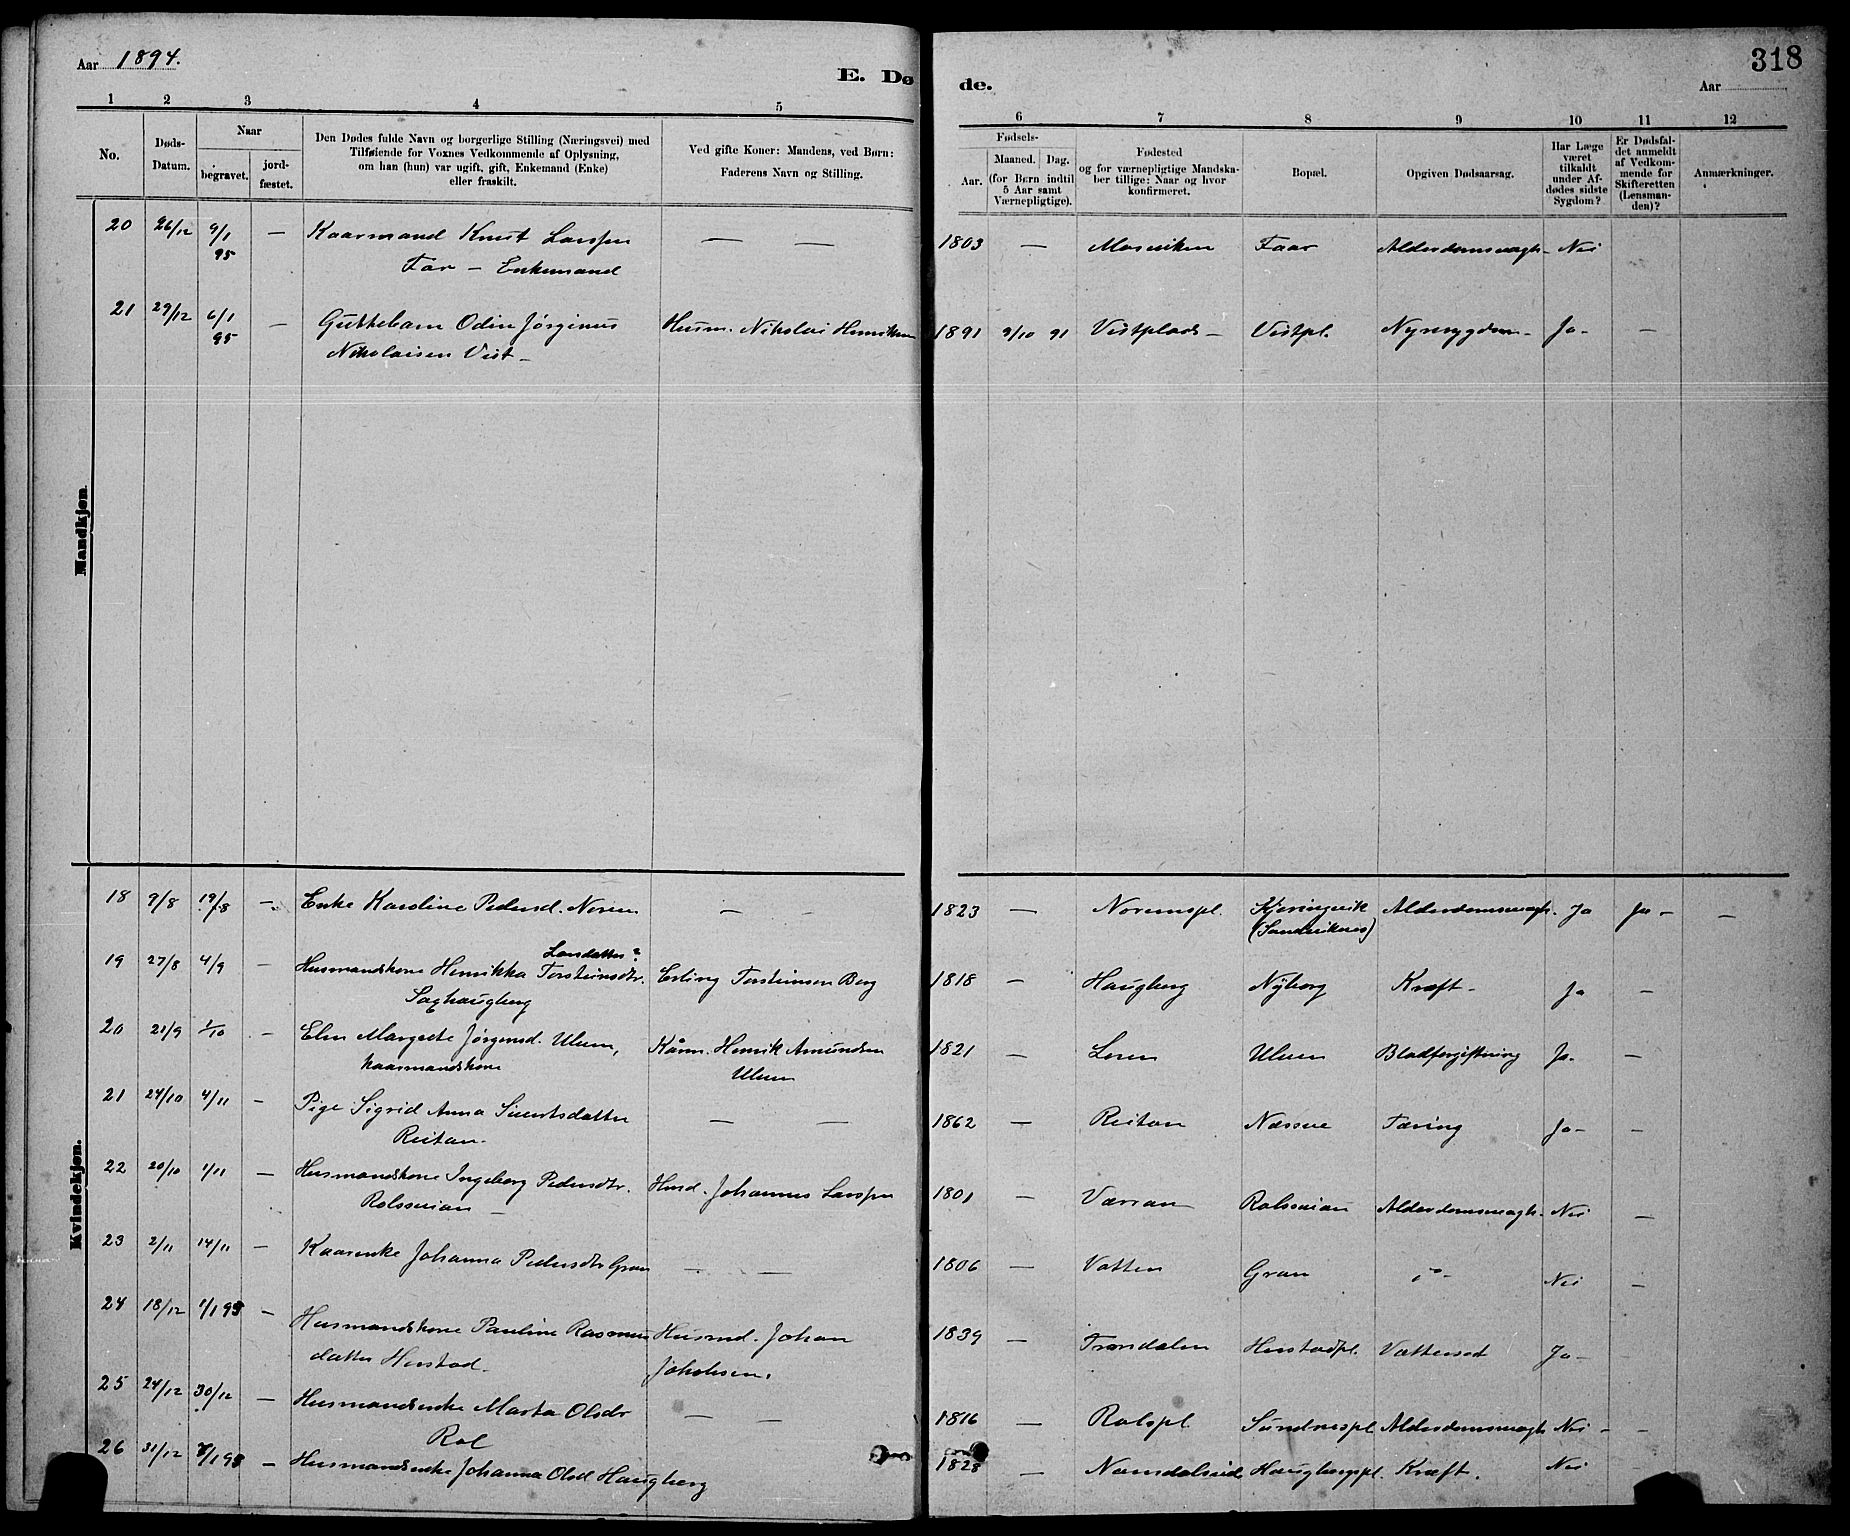 Aar 1894.
E. Døde.
Aar
318
1 2 3 4 5 6 7 8 9 10 11 12
No.
Døds-Datum.
Naar
begravet.
jord-fæstet.
Den Dødes fulde Navn og borgerlige Stilling (Næringsvei) med
Tilføiende for Voxnes Vedkommende af Oplysning,
om han (hun) var ugift, gift, Enkemand (Enke)
eller fraskilt.
Ved gifte Koner: Mandens, ved Børn:
Faderens Navn og Stilling.
Fødsels-
Aar.
Maaned. Dag.
(for Børn indtil
5 Aar samt
Værnepligtige).
Fødested
og for værnepligtige Mandska-
ber tillige: Naar og hvor
konfirmeret.
Bopæl.
Opgiven Dødsaarsag.
Har Læge
været
tilkaldt
under Af-
dødes sidste
Sygdom?
Er Dødsfal-
det anmeldt
af Vedkom-
mende for
Skifteretten
(Lensman-
den)?
Anmærkninger.
Mandkjøn.
20 26/12 9/1 95 — Kaarmand Knut Larssen — — 1803 — Mosviken Faar Alderdomssvagh. Nei
Far — Enkemand
21 29/12 6/1 95 — Guttebarn Odin Jørginus Husm. Nikolai Henriksen 1891 9/10 91 Vistplads — Vistpl. Nyresygdom — Ja — —
Nikolaisen Vist —
Kvindekjøn.
18 9/8 19/8 — Enke Karoline Pedersd. Noren — — 1823 — Noremspl. Kjeringvik Alderdomssvagh. Ja Ja — —
(Sandviknes)
Larsdatter?
19 27/8 4/9 — Husmandskone Henrikka Torsteinsdtr. Erling Torsteinsen Berg 1818 — Haugberg Nyborg Kræft — Ja —
Saghaugberg
20 21/9 1/10 — Elen Margrete Jørgensd. Ulven, Kårm. Henrik Amundsen 1821 — Loren Ulven Blodforgiftning Ja — —
Kaarmandskone Ulven
21 24/10 4/11 — Pige Sigrid Anna Siuertsdatter — — 1862 — Reitan Næssve Tæring Ja — —
Reitan —
22 20/10 1/11 — Husmandskone Ingeborg Pedersdtr. Husd. Johannes Larssen 1801 — Værran Rolssveian Alderdomssvagh. Nei —
Rolssveian —
23 2/11 14/11 — Kaarenke Johanna Pedersdtr Gran — — 1806 — Vatten Gran — " — Nei —
24 18/12 1/1 95 — Husmandskone Pauline Rasmus Husmd. Johan 1839 — Trondalen Herstadpl. Vattersot Ja — —
datter Herstad — Jakobsen.
25 24/12 30/12 — Husmandsenke Marta Olsdr — — 1816 — Rolspl Sundnespl Alderdomssvagh Nei — —
Rol
26 31/12 7/1 95 — Husmandsenke Johanna Olsd Haugberg 1828 — Namdalseid Haugbergspl. Kræft. Nei —